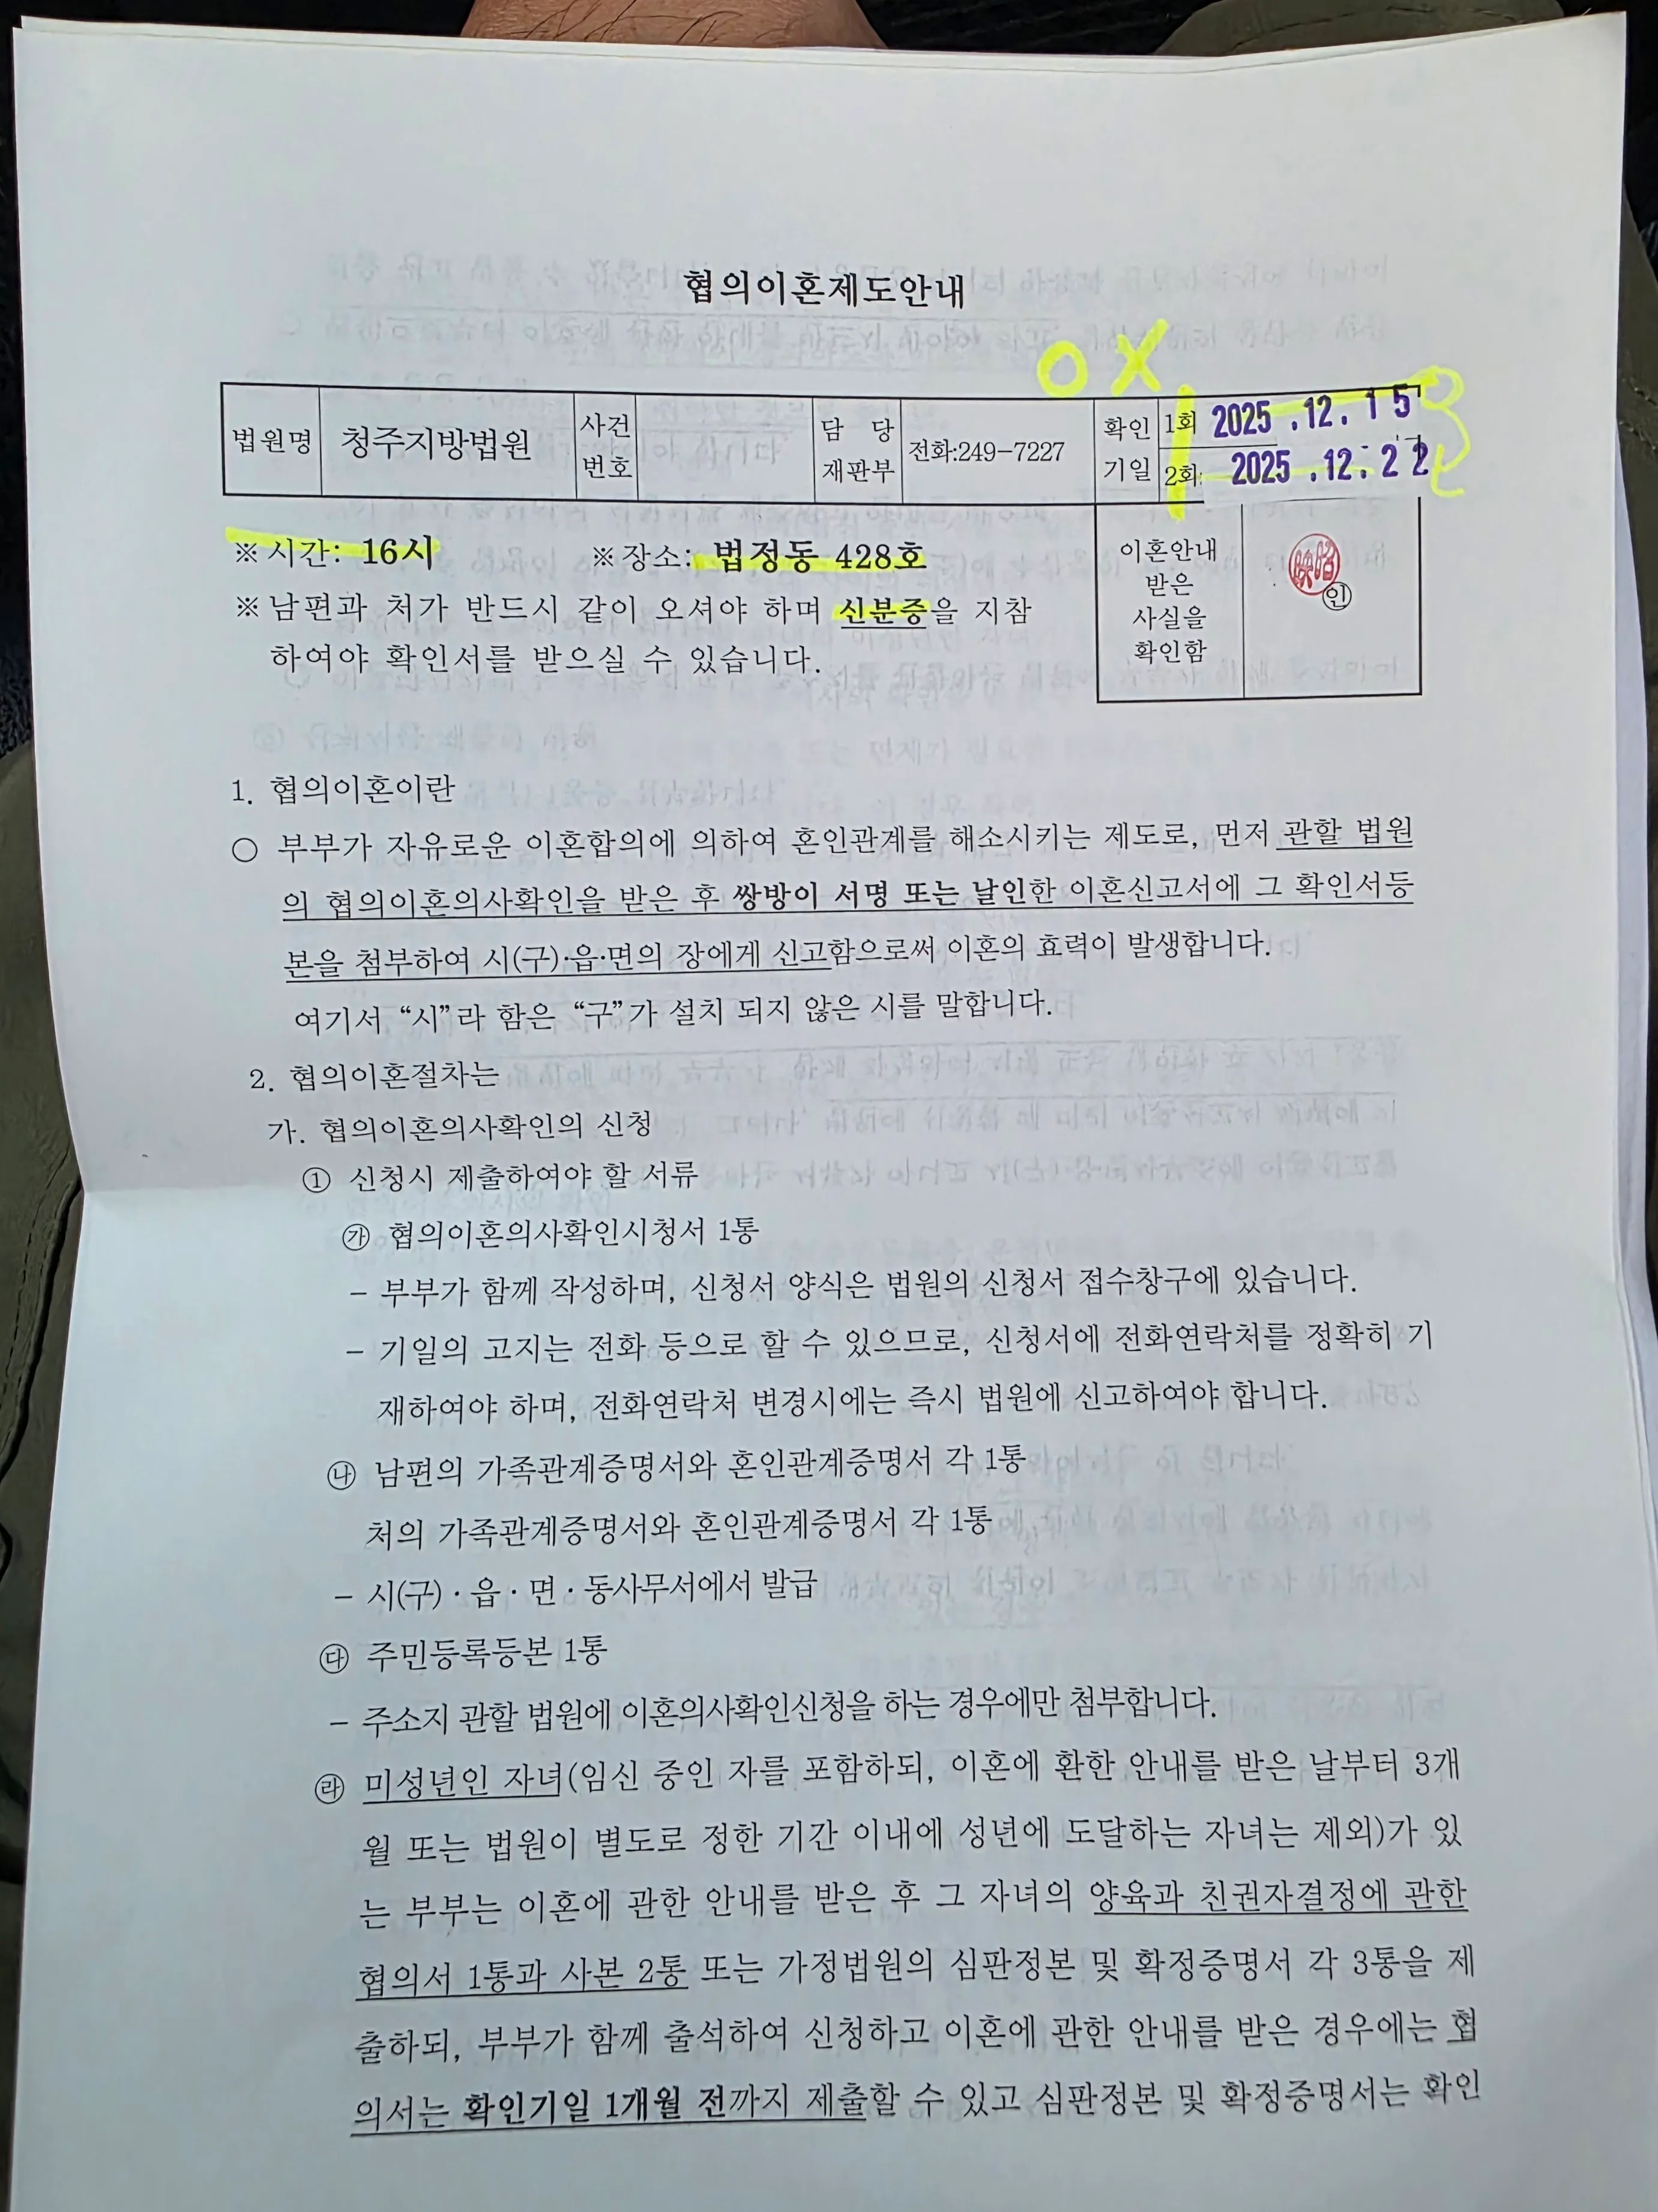 협의이혼제도안내
O X
법원명 청주지방법원 사건번호 담당재판부 전화:249-7227 확인기일 1회 2025.12.15
2회: 2025.12.22
※시간: 16시 ※장소: 법정동 428호
※남편과 처가 반드시 같이 오셔야 하며 신분증을 지참
하여야 확인서를 받으실 수 있습니다.
이혼안내
받은
사실을
확인함
인
1. 협의이혼이란
○ 부부가 자유로운 이혼합의에 의하여 혼인관계를 해소시키는 제도로, 먼저 관할 법원
의 협의이혼의사확인을 받은 후 쌍방이 서명 또는 날인한 이혼신고서에 그 확인서등
본을 첨부하여 시(구)·읍·면의 장에게 신고함으로써 이혼의 효력이 발생합니다.
여기서 “시”라 함은 “구”가 설치 되지 않은 시를 말합니다.
2. 협의이혼절차는
가. 협의이혼의사확인의 신청
① 신청시 제출하여야 할 서류
㉮ 협의이혼의사확인시청서 1통
- 부부가 함께 작성하며, 신청서 양식은 법원의 신청서 접수창구에 있습니다.
- 기일의 고지는 전화 등으로 할 수 있으므로, 신청서에 전화연락처를 정확히 기
재하여야 하며, 전화연락처 변경시에는 즉시 법원에 신고하여야 합니다.
㉯ 남편의 가족관계증명서와 혼인관계증명서 각 1통
처의 가족관계증명서와 혼인관계증명서 각 1통
- 시(구)·읍·면·동사무서에서 발급
㉰ 주민등록등본 1통
- 주소지 관할 법원에 이혼의사확인신청을 하는 경우에만 첨부합니다.
㉱ 미성년인 자녀(임신 중인 자를 포함하되, 이혼에 환한 안내를 받은 날부터 3개
월 또는 법원이 별도로 정한 기간 이내에 성년에 도달하는 자녀는 제외)가 있
는 부부는 이혼에 관한 안내를 받은 후 그 자녀의 양육과 친권자결정에 관한
협의서 1통과 사본 2통 또는 가정법원의 심판정본 및 확정증명서 각 3통을 제
출하되, 부부가 함께 출석하여 신청하고 이혼에 관한 안내를 받은 경우에는 협
의서는 확인기일 1개월 전까지 제출할 수 있고 심판정본 및 확정증명서는 확인